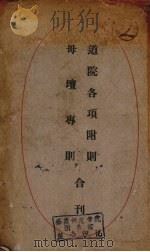 研狗
道院各項附則
母壇專則
合刊